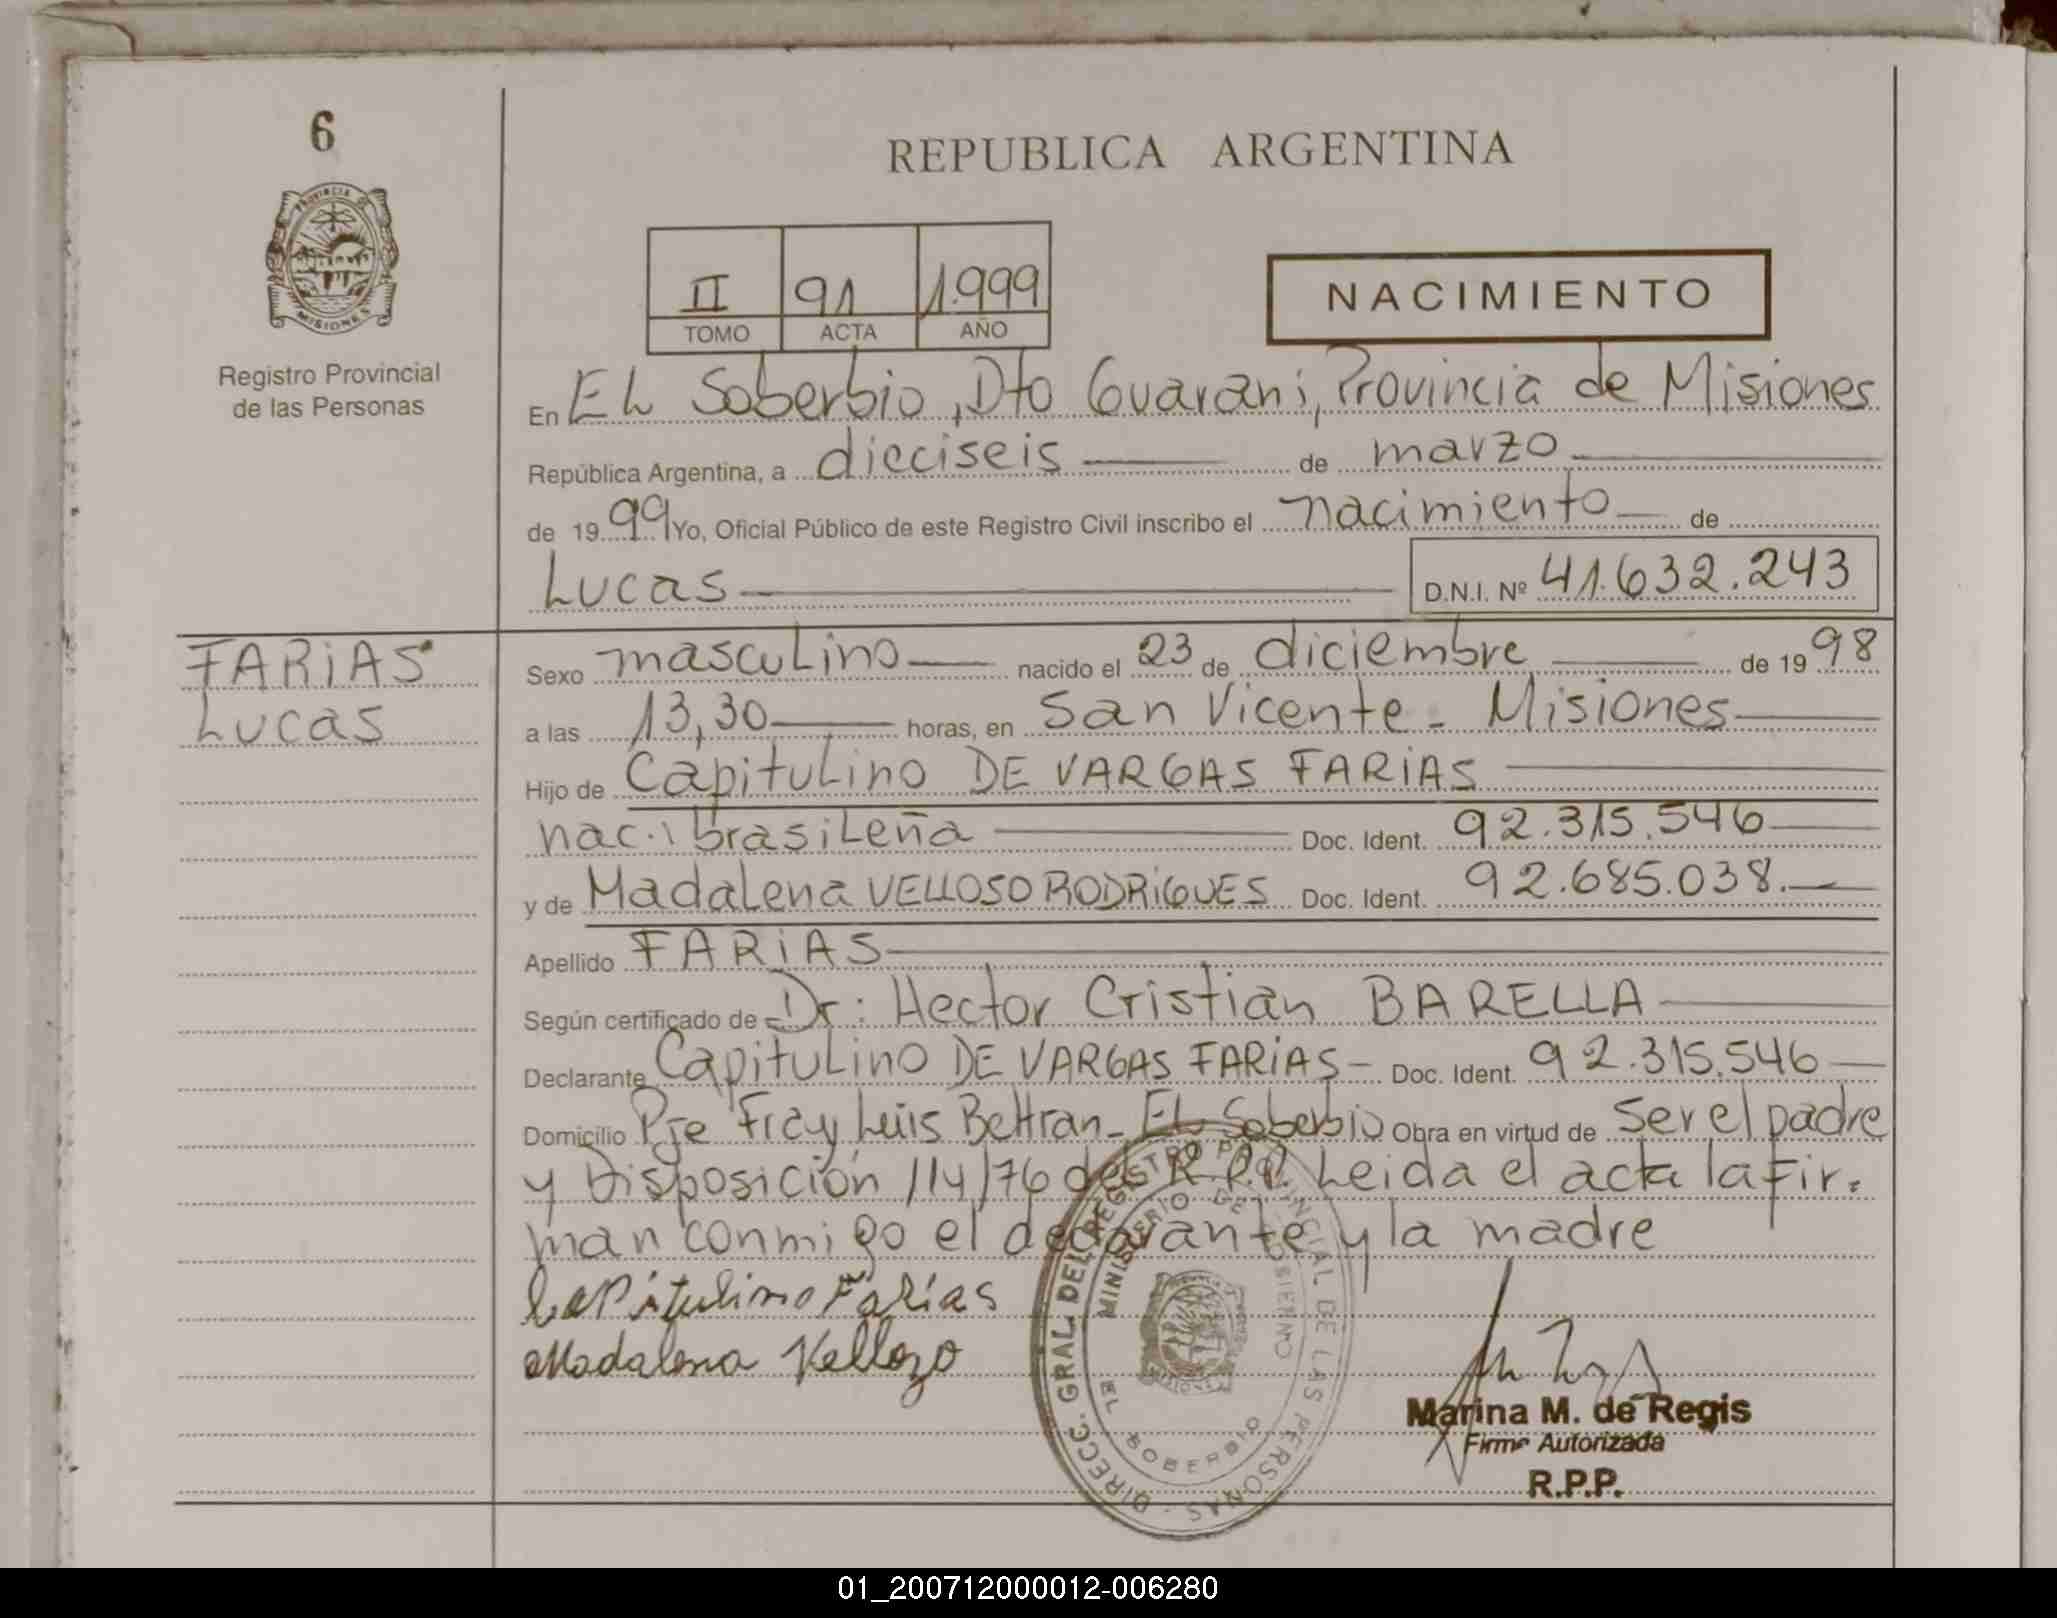 6
REPUBLICA ARGENTINA
PROVINCIA DE
MISIONES
Registro Provincial
de las Personas
II 91 1.999
TOMO ACTA AÑO
NACIMIENTO
En EL Soberbio, Dto Guarani, Provincia de Misiones
República Argentina, a dieciseis de marzo
de 1999 Yo, Oficial Público de este Registro Civil inscribo el nacimiento de
Lucas D.N.I. Nº 41.632.243
FARIAS
Lucas
Sexo masculino nacido el 23 de diciembre de 1998
a las 13,30 horas, en San Vicente - Misiones
Hijo de Capitulino DE VARGAS FARIAS
nac. brasileña Doc. Ident. 92.315.546
y de Madalena VELLOSO RODRIGUES Doc. Ident. 92.685.038.
Apellido FARIAS
Según certificado de Dr: Hector Cristian BARELLA
Declarante Capitulino DE VARGAS FARIAS - Doc. Ident. 92.315.546
Domicilio Pje Fray Luis Beltran - EL Soberbio Obra en virtud de ser el padre
y Disposición 114/76 del R.P.P. Leida el acta la fir-
man conmigo el declarante y la madre
Capitulino Farías
Madalena Vellozo
DIRECC. GRAL. DEL REGISTRO PROVINCIAL DE LAS PERSONAS -
MINISTERIO DE GOBIERNO
EL SOBERBIO
Marina M. de Regis
Firma Autorizada
R.P.P.
01_200712000012-006280